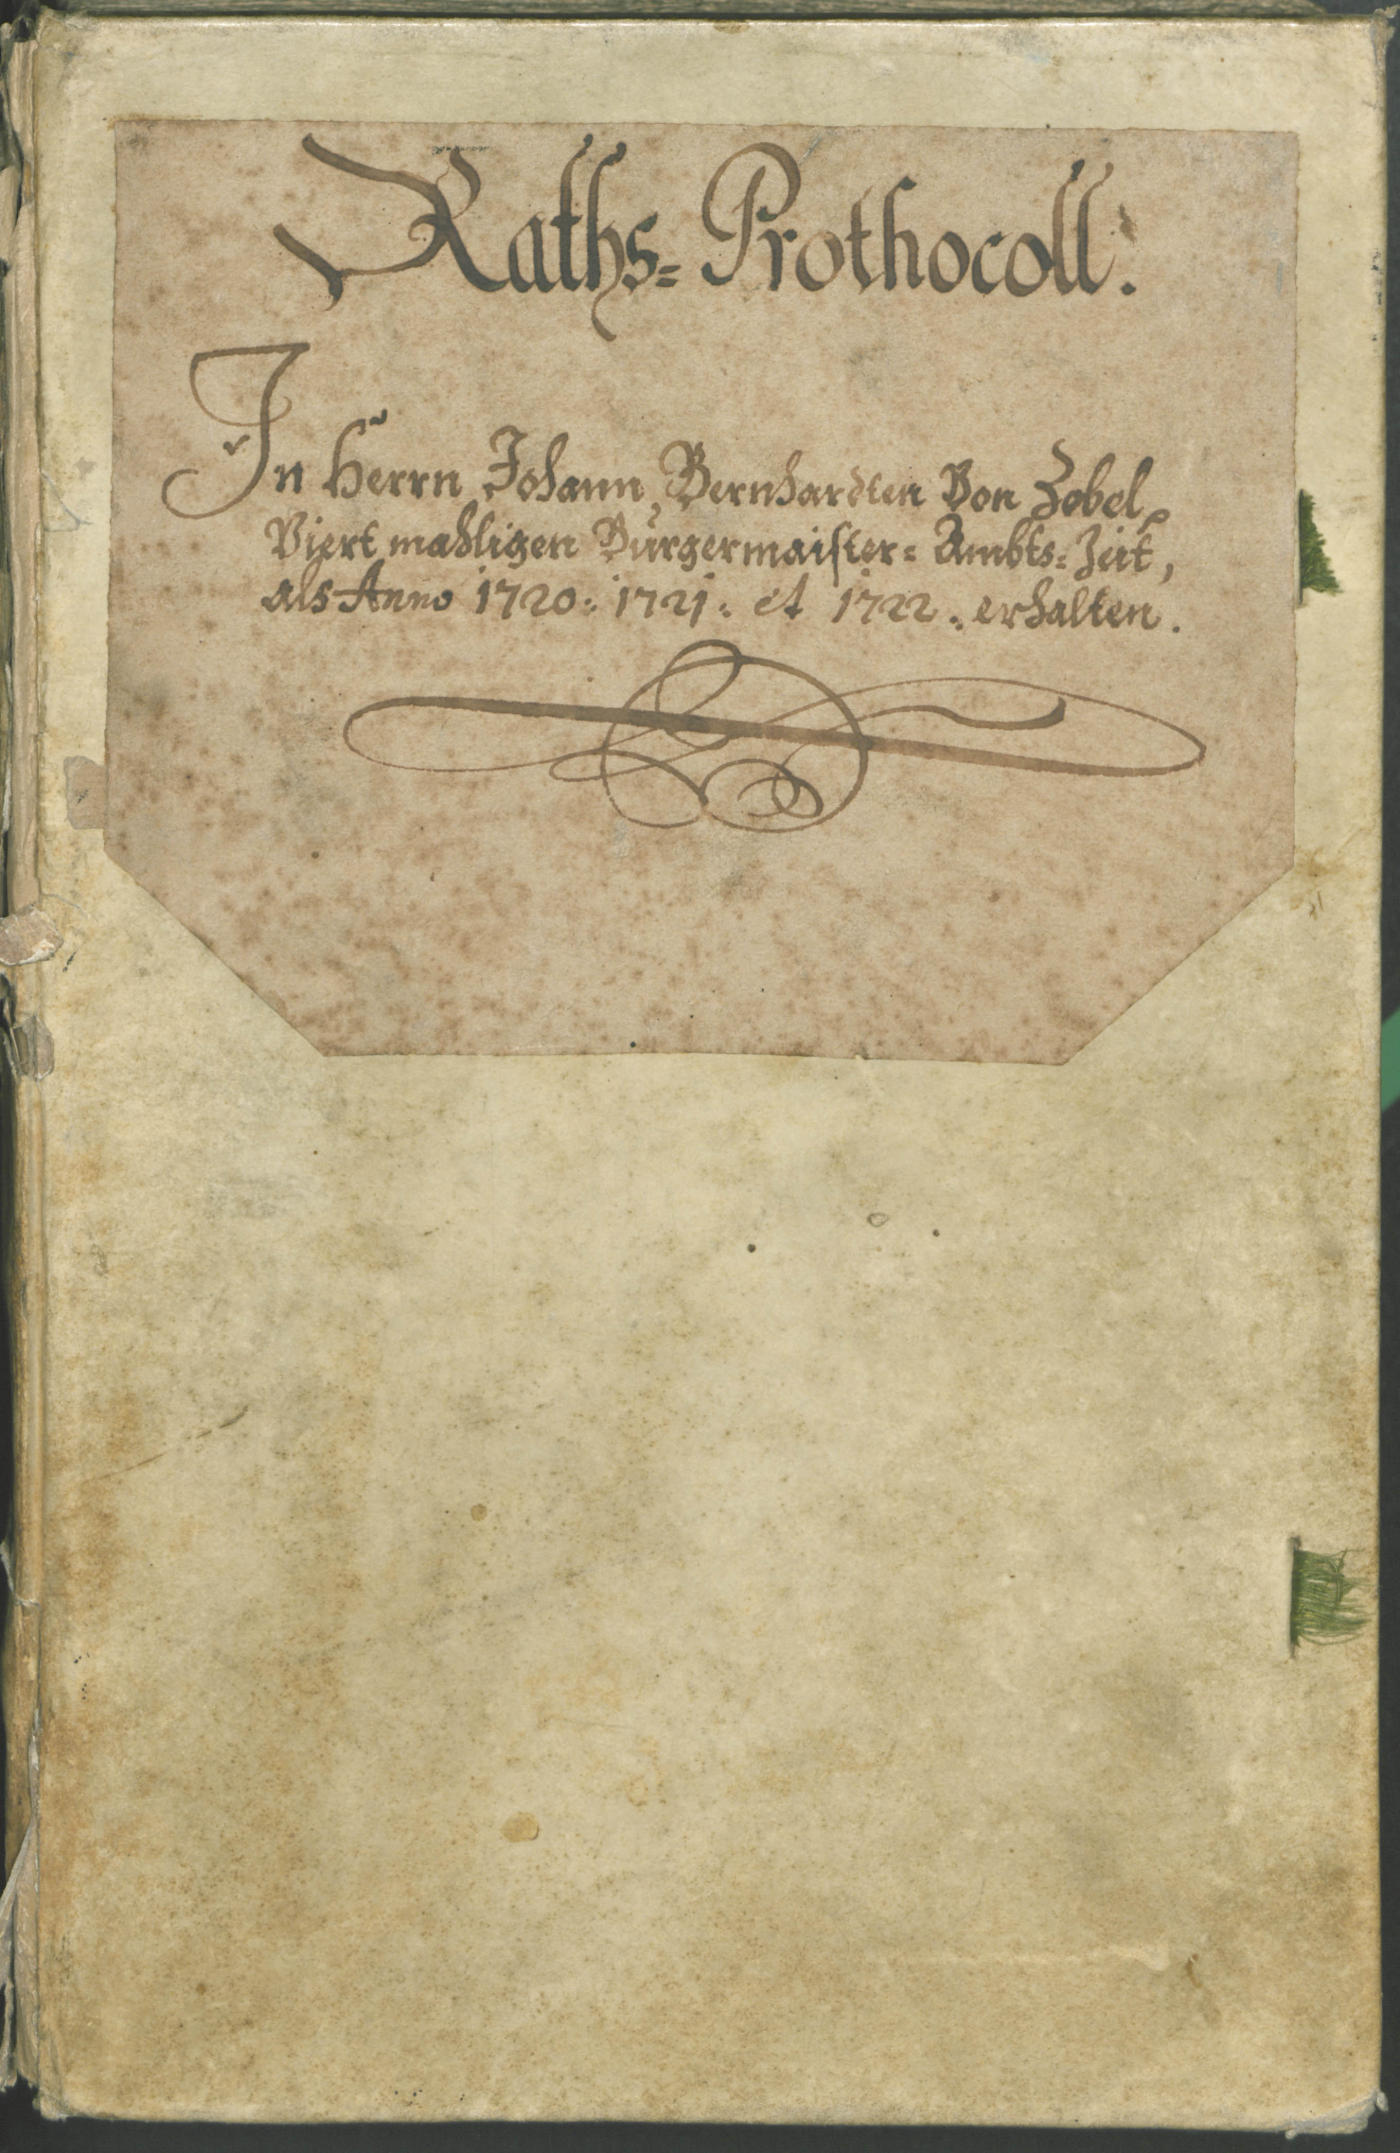 Raths- Prothocoll.
In Herrn Johann Bernhardten Von Zobel
Viert mahligen Burgermaister- Ambts- Zeit,
als Anno 1720. 1721. et 1722. erhalten.